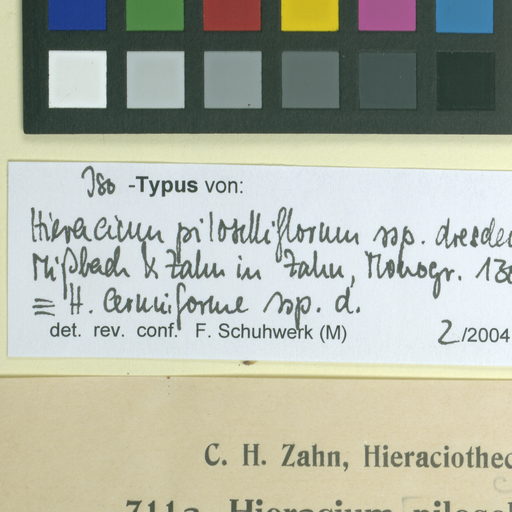 Iso -Typus von:
Hieracium piloselliflorum ssp. dresden
Mißbach & Zahn in Zahn, Monogr. 130
≡ H. cernuiforme ssp. d.
det. rev. conf. F. Schuhwerk (M) 2/2004
C. H. Zahn, Hieraciothec
711a. Hieracium pilosel